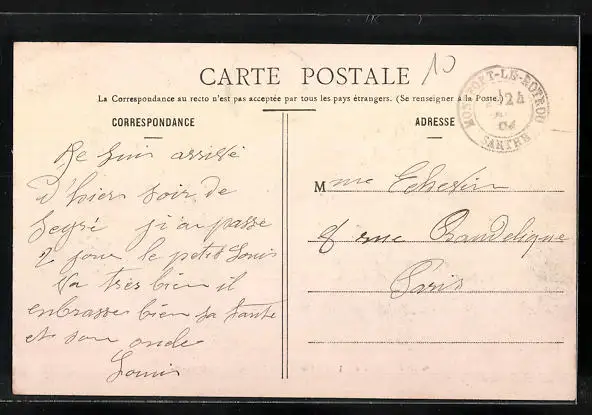 10
CARTE POSTALE
La Correspondance au recto n'est pas acceptée par tous les pays étrangers. (Se renseigner à la Poste.)
MONTFORT-LE-ROTROU
SARTHE
CORRESPONDANCE
ADRESSE
Je suis arrivé
d'hier soir de
Segré j'ai passé
2 jour le petit Louis
Va très bien il
enbrasse bien sa tante
et son oncle
Louis
Mme
8 rue Baudelique
Paris